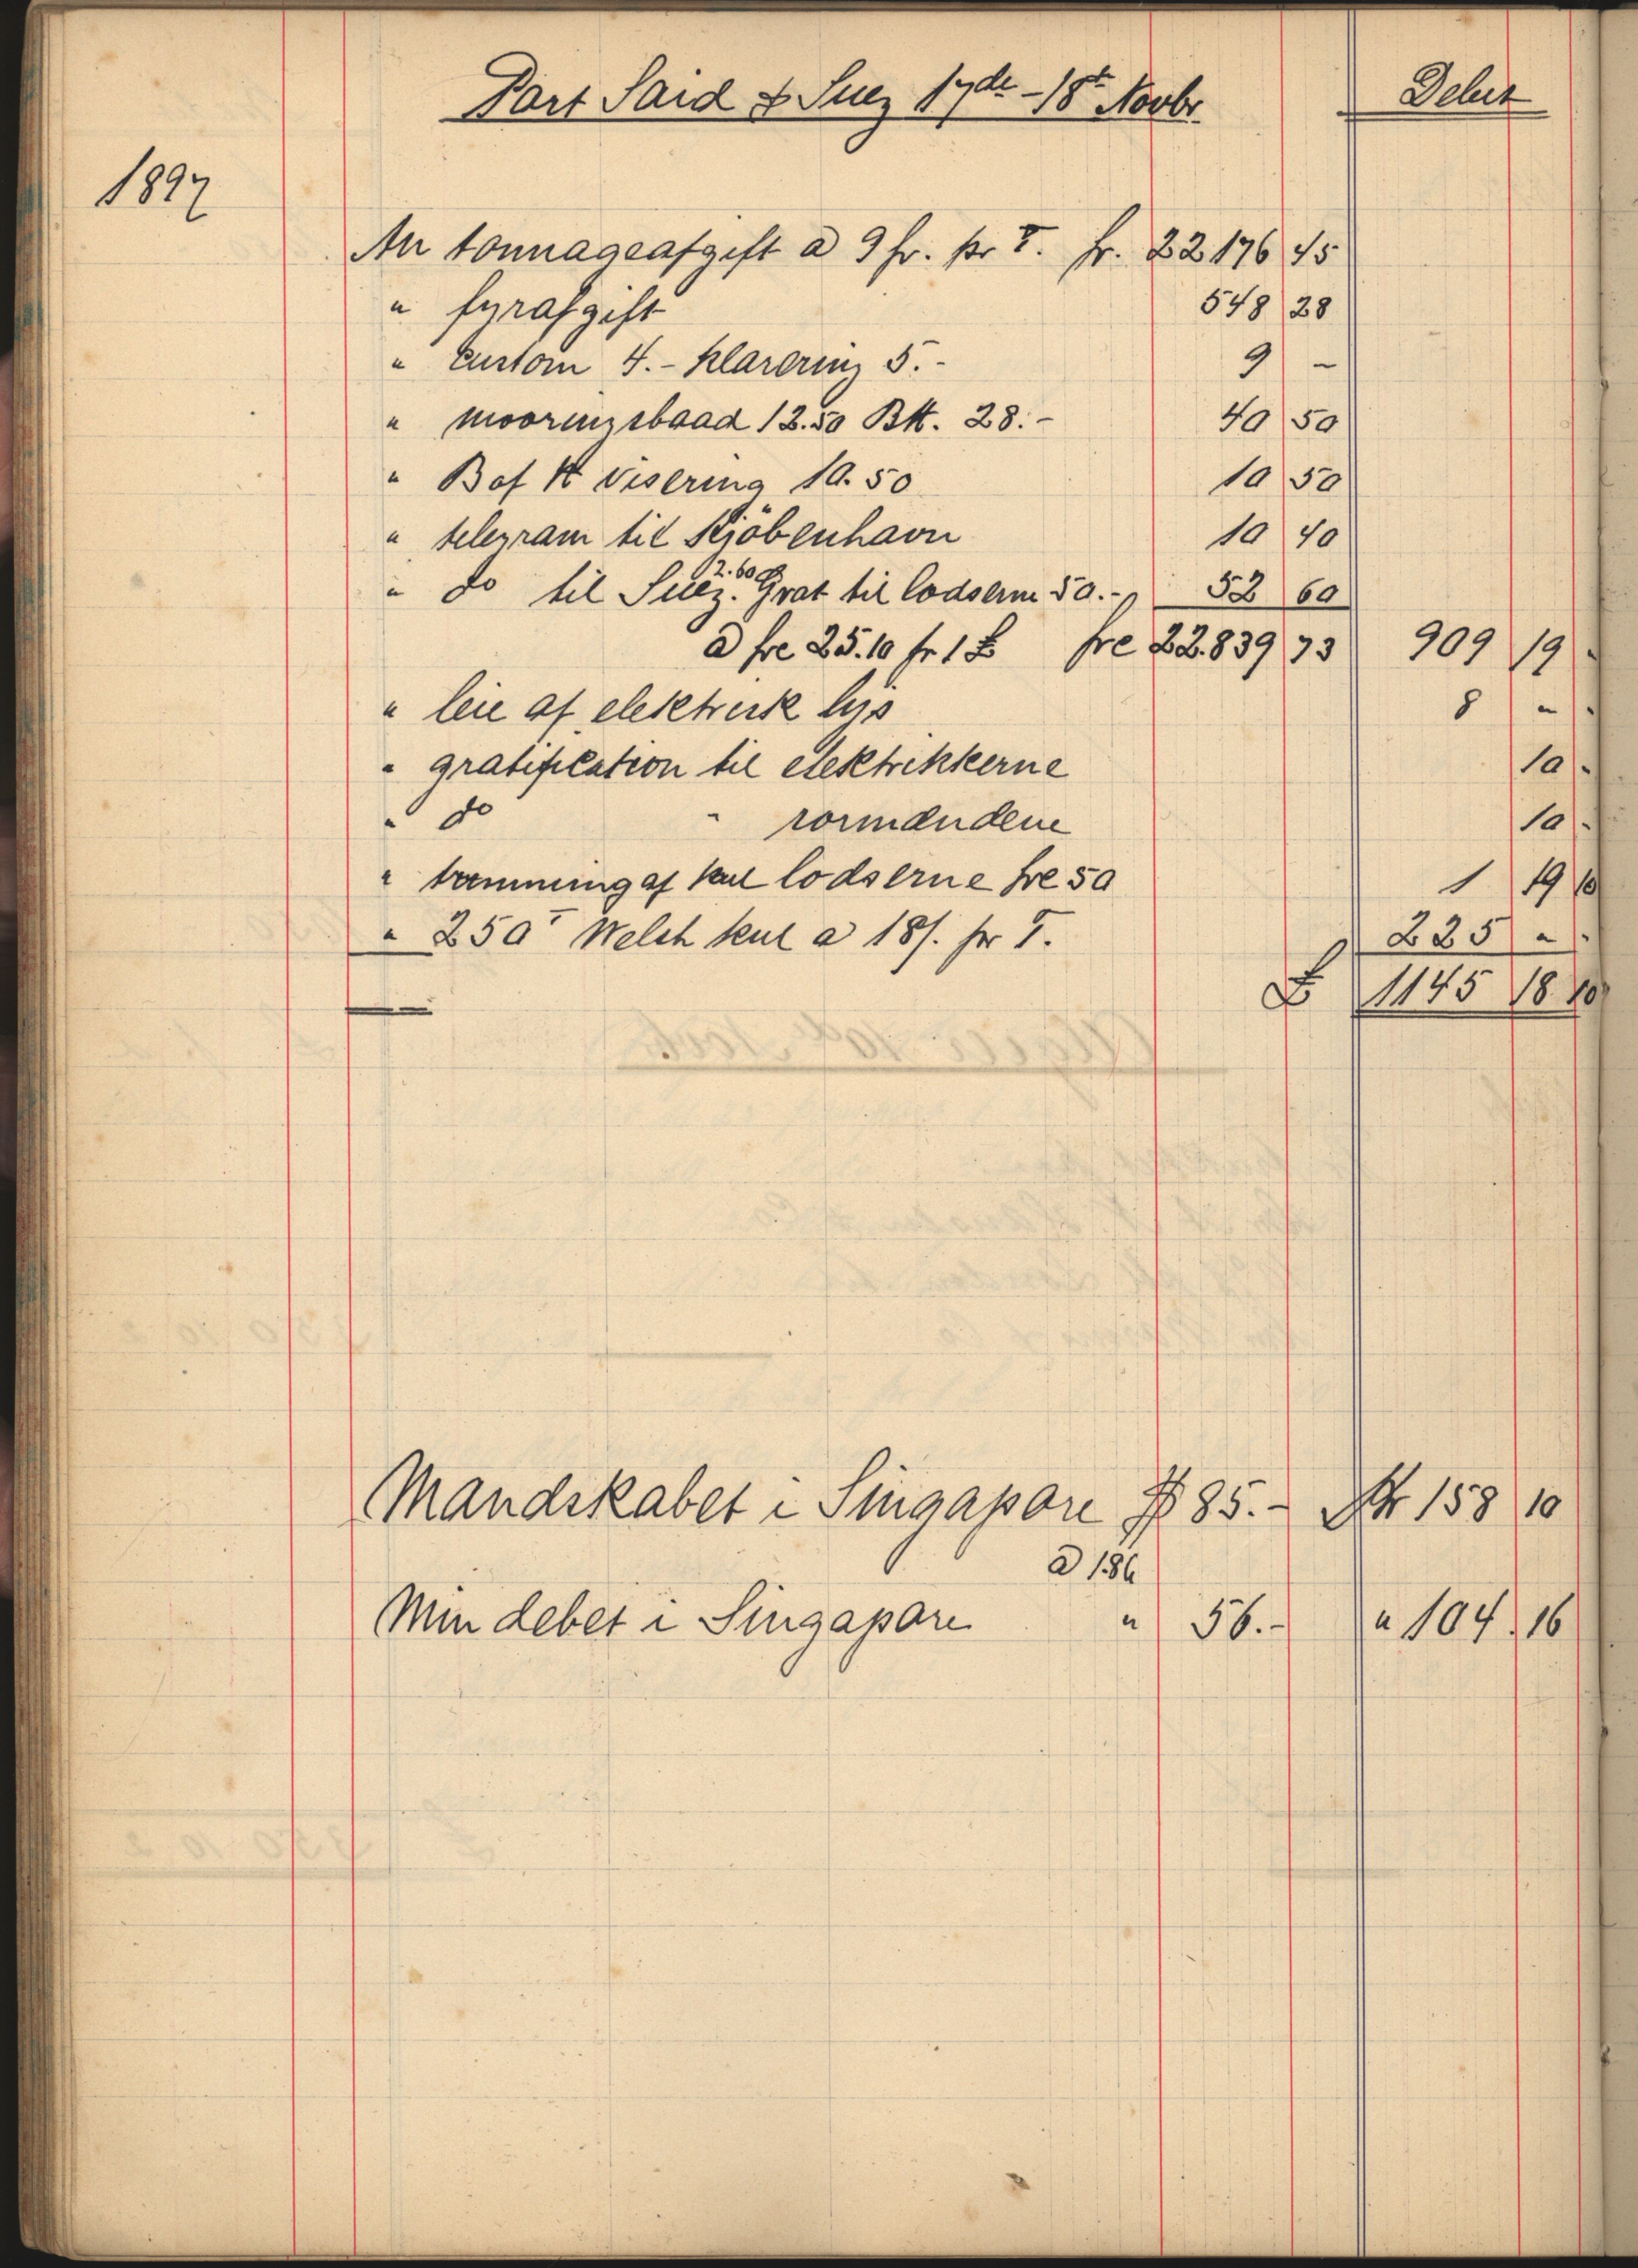 Port Said & Suez 17de - 18de Novbr.
Debet
1897
An tonnageafgift a 9 fr. pr T. fr. 22176 45
" fyrafgift 548 28
" Custom 4.- Klarering 5.- 9 -
" mooringsbaad 12.50 Btt. 28.- 40 50
" Bof H visering 10.50 10 50
" telegram til Kjöbenhavn 10 40
" do til Suez. 2.60 Grat til lodserne 50.- 52 60
a frc 25.10 pr 1 £ frc 22.839 73 909 19 -
" leie af elektrisk lys 8 " -
" gratification til elektrikkerne 10 -
" do " rormændene 10 -
" tramning af kul lodserne frc 50 1 19 10
" 250 T Welsh kul a 18/. pr T. 225 " -
£ 1145 18 10
Mandskabet i Singapore $ 85.- Kr 158 10
a 186
Min debet i Singapore " 56.- " 104.16